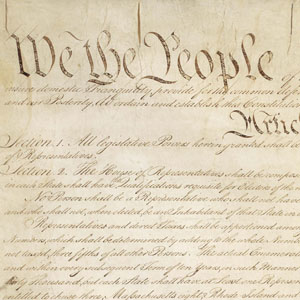 We the People
insure domestic Tranquility, provide for the common defe
and our Posterity, do ordain and establish this Constitution
Artic
Section. 1. All legislative Powers herein granted shall be
of Representatives.
Section. 2. The House of Representatives shall be compos
in each State shall have Qualifications requisite for Electors of the
No Person shall be a Representative who shall not have
and who shall not, when elected, be an Inhabitant of that State in
Representatives and direct Taxes shall be apportioned among
Numbers, which shall be determined by adding to the whole Numbe
not taxed, three fifths of all other Persons. The actual Enumera
and within every subsequent Term of ten Years, in such Manner
thirty Thousand, but each State shall have at Least one Represen
to chuse three, Massachusetts eight, Rhode Island and